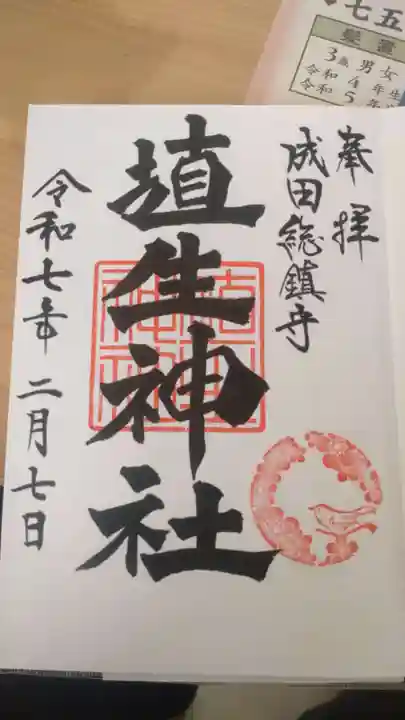 奉拝
成田総鎮守
埴生神社
令和七年二月七日
七五
髪置
3歳 男女
令和4年生
令和5年